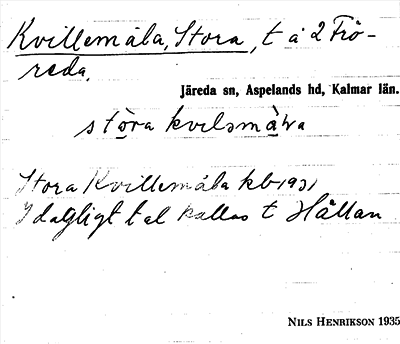 Kvillemåla, Stora, t å 2 Frö-
reda.
Järeda sn, Aspelands hd, Kalmar län.
stòra kvilsmàla
Stora Kvillemåla kb 1931
I dagligt tal kallas t Hållan
NILS HENRIKSON 1935